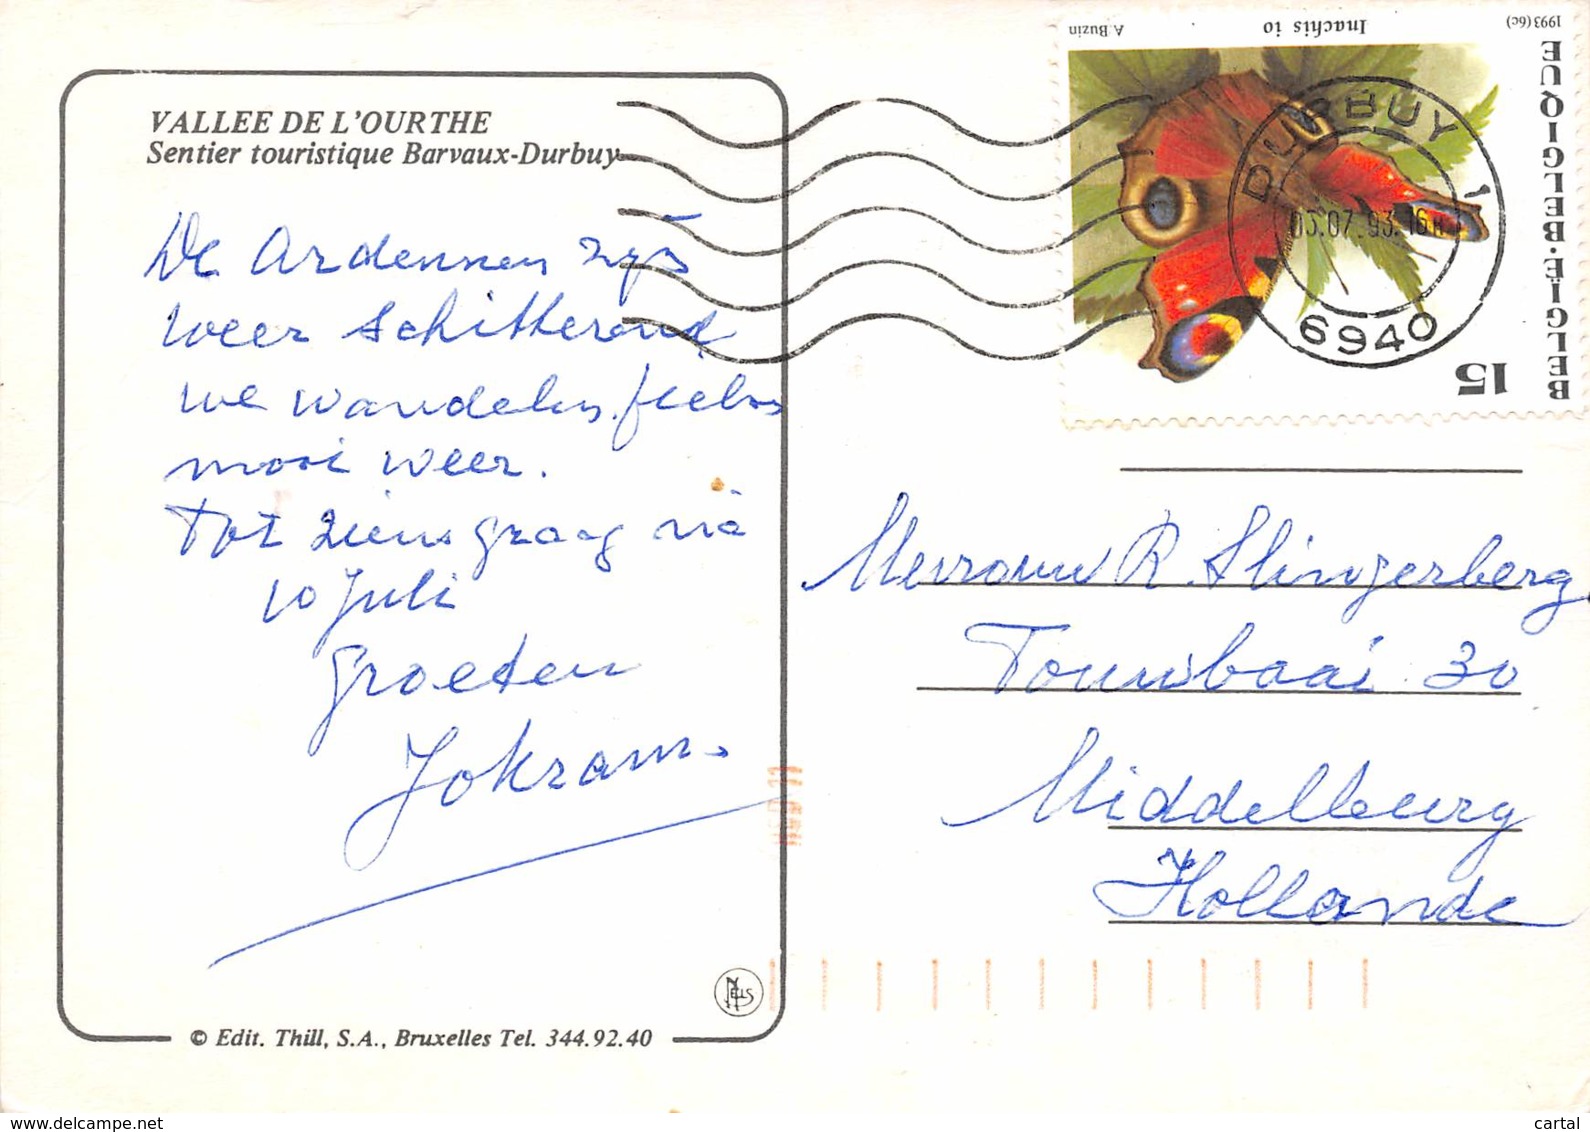 VALLEE DE L'OURTHE
Sentier touristique Barvaux-Durbuy
De Ardennen zijn
weer schitterend
we wandelen, fietsen
mooi weer.
Tot ziens graag via
10 Juli
Groeten
© Edit. Thill, S.A., Bruxelles Tel. 344.92.40
NELS
A. Buzin
Inachis io
1993 (6c)
BELGIË·BELGIQUE
15
DURBUY 1
03.07.93.16H
6940
Mevrouw R. Slingerberg
Touwbaai 30
Middelburg
Hollande
www.delcampe.net
cartal